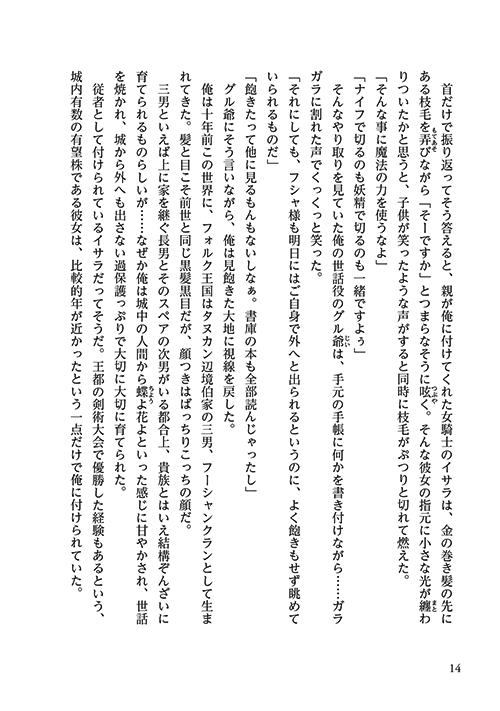 首だけで振り返ってそう答えると、親が俺に付けてくれた女騎士のイサラは、金の巻き髪の先に
ある枝毛を弄びながら「そーですか」とつまらなそうに呟く。そんな彼女の指元に小さな光が纏わ
りついたかと思うと、子供が笑ったような声がすると同時に枝毛がぷつりと切れて燃えた。
「そんな事に魔法の力を使うなよ」
「ナイフで切るのも妖精で切るのも一緒ですよぅ」
そんなやり取りを見ていた俺の世話役のグル爺は、手元の手帳に何かを書き付けながら……ガラ
ガラに割れた声でくっくっと笑った。
「それにしても、フシャ様も明日にはご自身で外へと出られるというのに、よく飽きもせず眺めて
いられるものだ」
「飽きたって他に見るもんもないしなぁ。書庫の本も全部読んじゃったし」
グル爺にそう言いながら、俺は見飽きた大地に視線を戻した。
俺は十年前この世界に、フォルク王国はタヌカン辺境伯家の三男、フーシャンクランとして生ま
れてきた。髪と目こそ前世と同じ黒髪黒目だが、顔つきはばっちりこっちの顔だ。
三男といえば上に家を継ぐ長男とそのスペアの次男がいる都合上、貴族とはいえ結構ぞんざいに
育てられるものらしいが……なぜか俺は城中の人間から蝶よ花よといった感じに甘やかされ、世話
を焼かれ、城から外へも出さない過保護っぷりで大切に大切に育てられた。
従者として付けられているイサラだってそうだ。王都の剣術大会で優勝した経験もあるという、
城内有数の有望株である彼女は、比較的年が近かったという一点だけで俺に付けられていた。
14